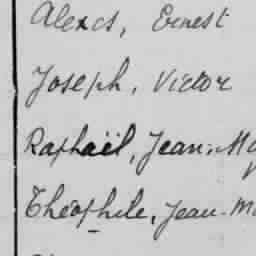 Alexcs, Ernest
Joseph, Victor
Raphaël, Jean-
Théophile, Jean-